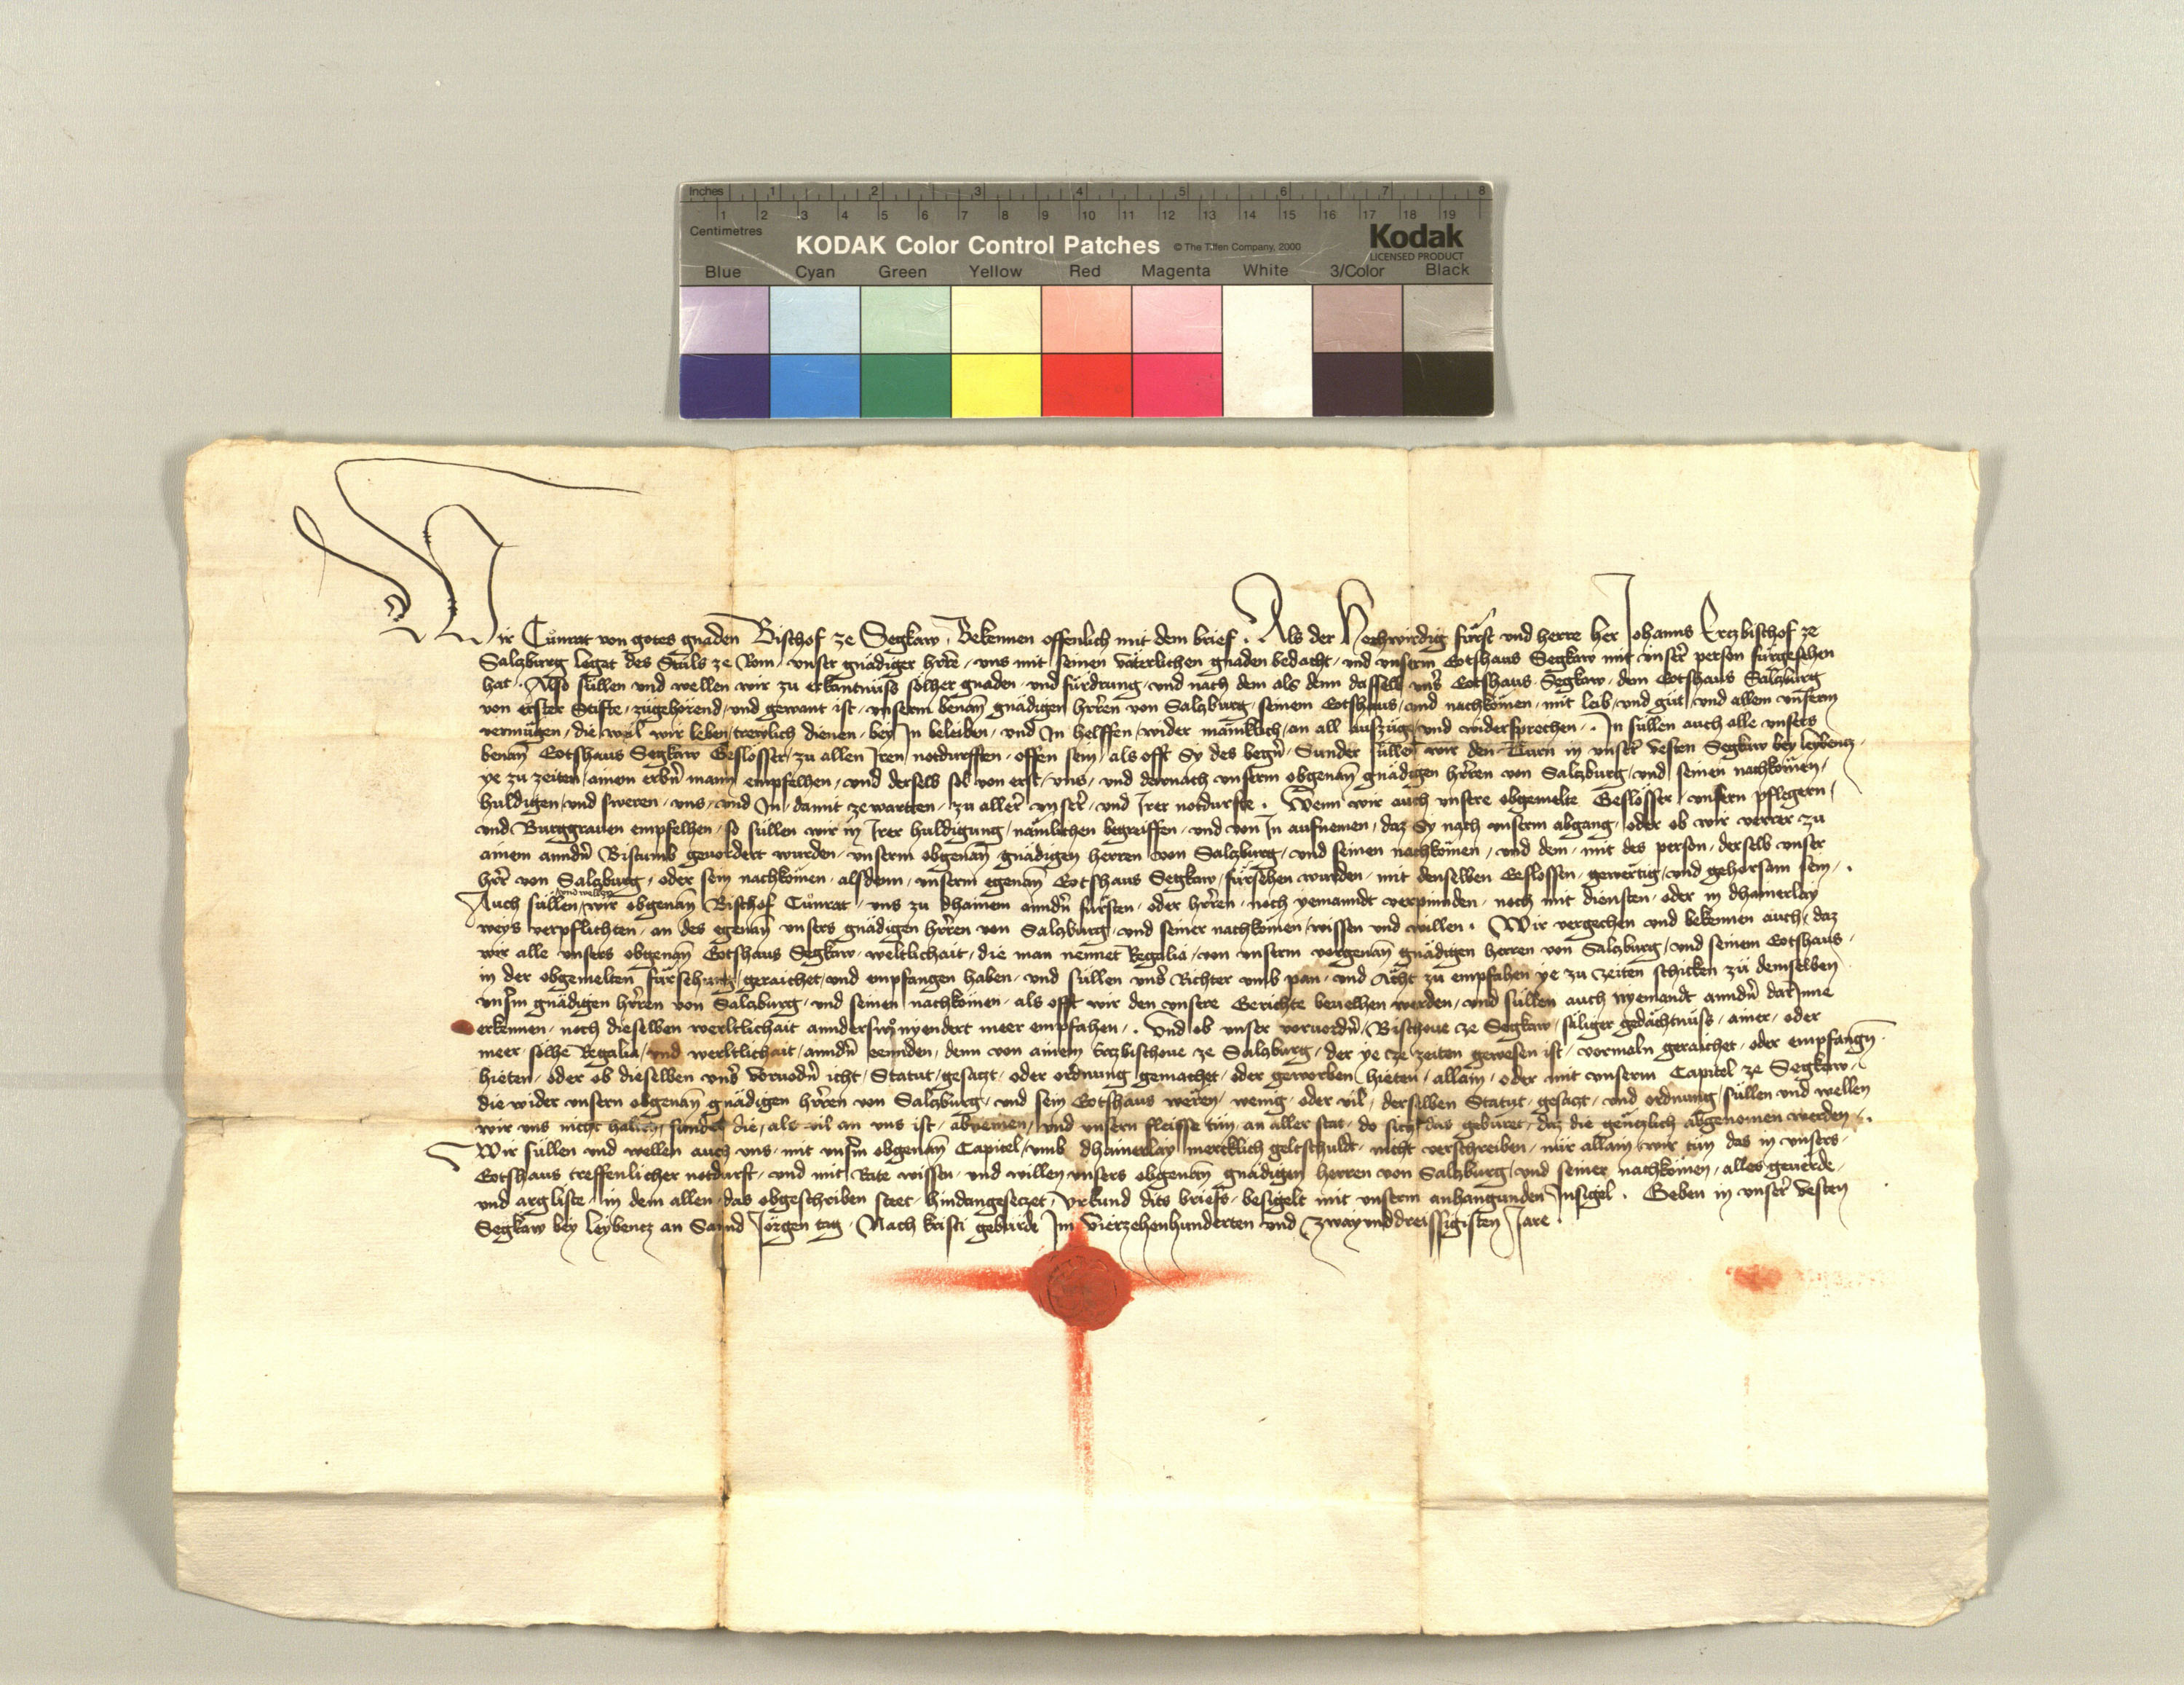 Inches 1 2 3 4 5 6 7 8
1 2 3 4 5 6 7 8 9 10 11 12 13 14 15 16 17 18 19
Centimetres
KODAK Color Control Patches © The Tiffen Company, 2000 Kodak
LICENSED PRODUCT
Blue Cyan Green Yellow Red Magenta White 3/Color Black
Wir Cůnrat von gotes gnaden Bischof ze Segkaw, Bekennen offenlich mit dem brief. Als der Hochwirdig fürst vnd herre her Johanns Erczbischof ze
Salzburg legat des Stůls ze Rom, vnser gnädiger hrre, vns mit seinen väterlichen gnaden bedacht, vnd vnserm Gotshaus Segkaw mit vnserr person fürgesehen
hat. Also süllen vnd wellen wir zu erkantnüss sölher gnaden vnd fürdrung, vnd nach dem als denn dasselb vns Gotshaus Segkaw, dem Gotshaus Salzburg
von erster Stifte, zůgehörend, vnd gewant ist, vnserm benan gnädigen hrren von Salzburg, seinem Gotshaus, vnd nachkomen, mit leib, vnd gůt, vnd allem vnserm
vermügen, die weil wir leben, trewlich dienen, bey In beleiben, vnd In helffen, wider mäniklich, an all auszüg, vnd widersprechen. In süllen auch alle vnsers
benan Gotshaus Segkaw Geslösser, zu allen Iren notdurfften, offen sein, als offt Sy des begern, Sunder süllen wir den Turn in vnserr vesten Segkaw bey leybencz,
ye zu zeiten, ainem erbern mann empfelhen, vnd derselb sol von erst, vns, vnd dernach vnserm obgenan gnädigen hrren von Salzburg, vnd seinen nachkomen,
huldigen, vnd sweren, vns, vnd In, damit zewartten, zu allerr vnserr, vnd Irer notdurfte. Wenn wir auch vnsere obgemelte Geslösser, vnsern pflegern,
vnd Burggrauen empfelhen, so süllen wir in Irer huldigung, nämlichen begreiffen, vnd von In aufnemen, daz Sy nach vnserm abgang, oder ob wir verrer zu
ainem anndern Bistumb geuordert wurden, vnserm obgenan gnädigen herren von Salzburg, vnd seinen nachkomen, vnd dem, mit des person, derselb vnser
hrr von Salzburg, oder sein nachkomen, alsdenn, vnserm egenan Gotshaus Segkaw, fürsehen wurden, mit denselben Geslossen, gewertig, vnd gehorsam sein.
Auch süllen vnd wellen wir obgenan Bischof Cůnrat, vns zu dhainem anndern fürsten, oder hrren, noch yemanndt verpinnden, noch mit diensten, oder in dhainerlay
weys verpflichten, an des egenan vnsers gnädigen hrren von Salzburg, vnd seiner nachkomen, wissen vnd willen. Wir vergechen vnd bekennen auch, daz
wir alle vnsers obgenan Gotshaus Segkaw, weltlichait, die man nennet Regalia, von vnserm vorgenan gnädigen herren von Salzburg, vnd seinem Gotshaus,
in der obgemelten fürsehung, geraichet, vnd empfangen haben, vnd süllen vns Richter vmb pan, vnd Acht zu empfahen ye zu zeiten schicken zů demselben
vnserm gnädigen hrren von Salzburg, vnd seinen nachkomen, als offt wir den vnsere Gerichte beuelhen werden, vnd süllen auch nyemandt anndern darInne
erkennen, noch dieselben werltlichait annderswo nyendert meer empfahen. Vnd ob vnser voruordern, Bischoue ze Segkaw, säliger gedächtnüss, ainer, oder
meer, sölhe Regalia, vnd werltlichait, anndern ennden, denn von ainem Erczbischoue ze Salzburg, der ye cze zeiten gewesen ist, vormaln geraichet, oder empfangn
hieten, oder ob dieselben vns voruodern icht, Statut, gesaczt, oder ordnung gemachet, oder geworben hieten, allain, oder mit vnserm Capitel ze Segkaw,
die wider vnsern obgenan gnädigen hrren von Salzburg, vnd sein Gotshaus weren, wenig, oder vil, derselben Statut, gesaczt, vnd ordnung, süllen vnd wellen
wir vns nicht halten, sunder die, als vil an vns ist, abnemen, vnd vnsern fleisse tůn, an aller stat, do sich das gebüret, daz die genczlich abgenomen werden.
Wir süllen vnd wellen auch vns, mit vnserm obgenan Capitel, vmb dhainerlay mercklich geltschuldt, nicht verschreiben, nur allain, wir tůn das in vnsers
Gotshaus treffenlicher notdurft, vnd mit Rate wissen, vnd willen vnsers obgenan gnädigen herren von Salzburg, vnd seiner nachkomen, alles geuërde,
vnd argliste, in dem allen, das obgeschriben steet, hindangeseczet, Vrkund dits briefs, besigelt mit vnserm anhangunden Insigel. Geben in vnserr vesten
Segkaw bey leybencz an Sannd Jörgen tag, Nach kristi gebürde Im Vierzehenhunderten vnd Zwayunddreissigisten Jare.